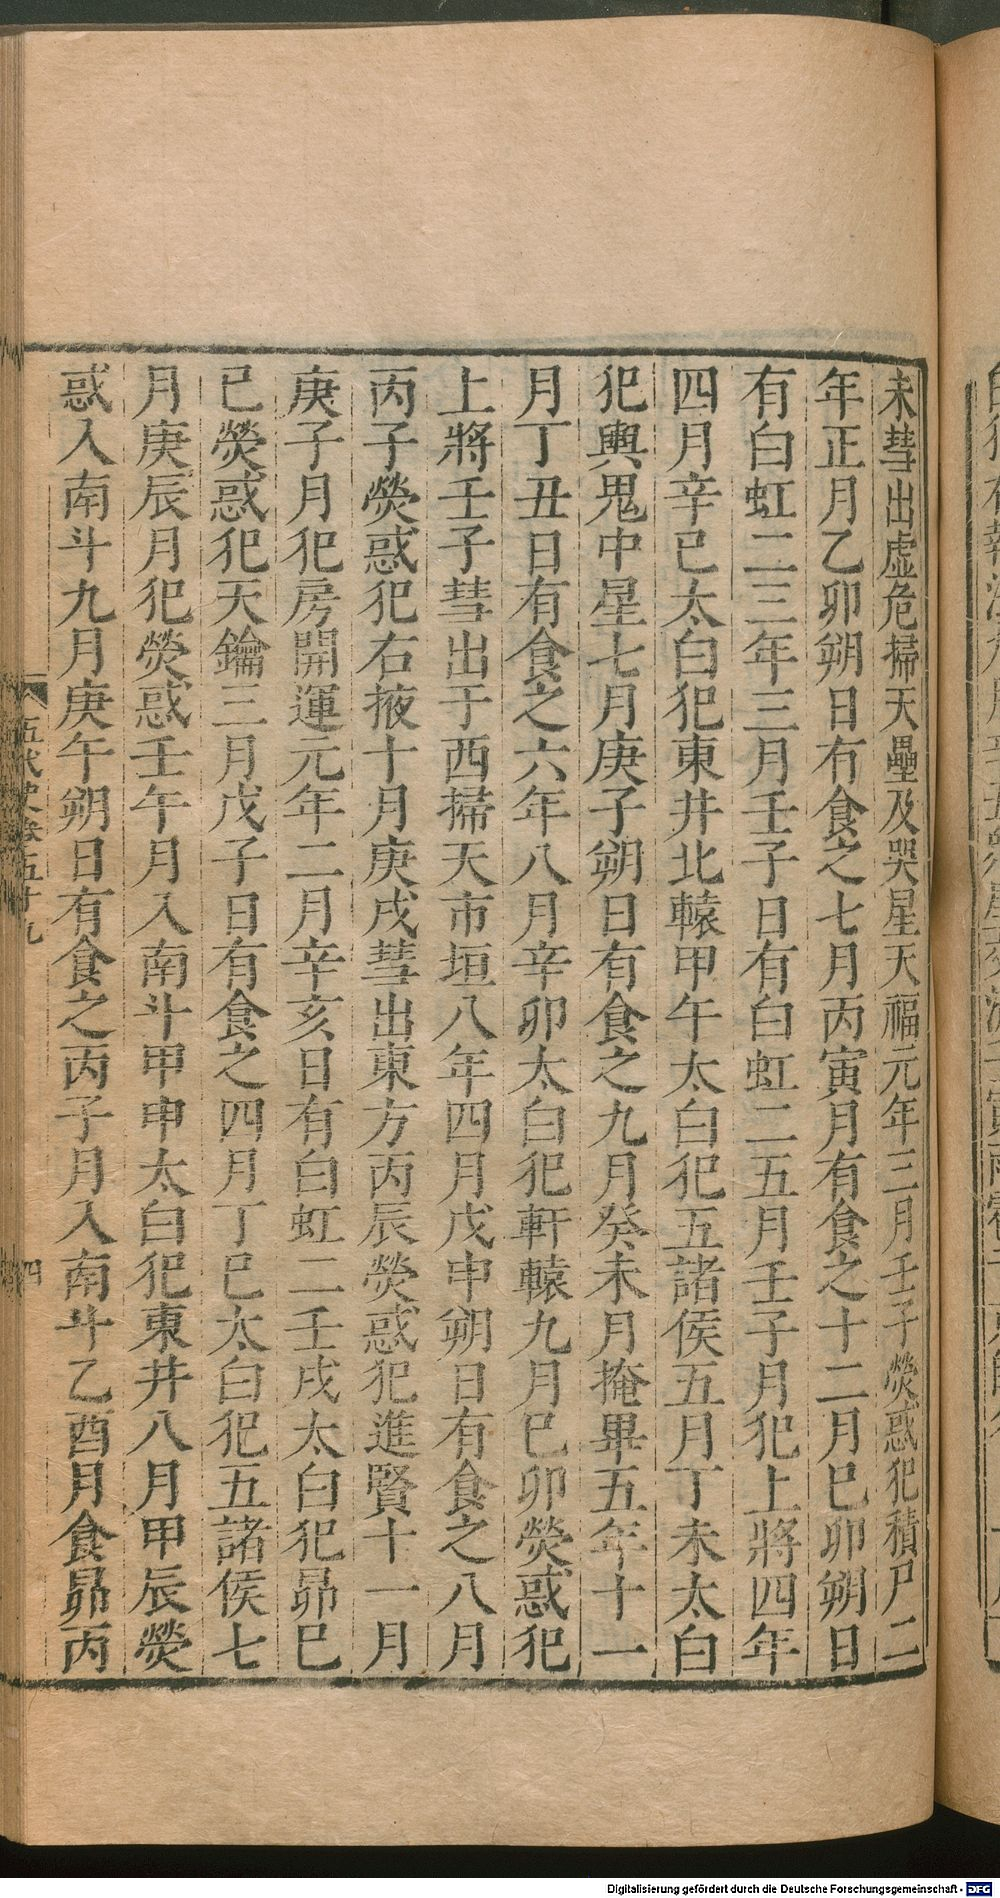 未彗出虛危掃天壘及哭星天福元年三月壬子熒惑犯積尸二
年正月乙卯朔日有食之七月丙寅月有食之十二月巳卯朔日
有白虹二三年三月壬子日有白虹二五月壬子月犯上將四年
四月辛巳太白犯東井北轅甲午太白犯五諸侯五月丁未太白
犯輿鬼中星七月庚子朔日有食之九月癸未月掩畢五年十一
月丁丑日有食之六年八月辛卯太白犯軒轅九月巳卯熒惑犯
上將壬子彗出于西掃天市垣八年四月戊申朔日有食之八月
丙子熒惑犯右掖十月庚戌彗出東方丙辰熒惑犯進賢十一月
庚子月犯房開運元年二月辛亥日有白虹二壬戌太白犯昴巳
巳熒惑犯天鑰三月戊子日有食之四月丁巳太白犯五諸侯七
月庚辰月犯熒惑壬午月入南斗甲申太白犯東井八月甲辰熒
惑入南斗九月庚午朔日有食之丙子月入南斗乙酉月食昴丙
五代史卷五十九
四
Digitalisierung gefördert durch die Deutsche Forschungsgemeinschaft - DFG